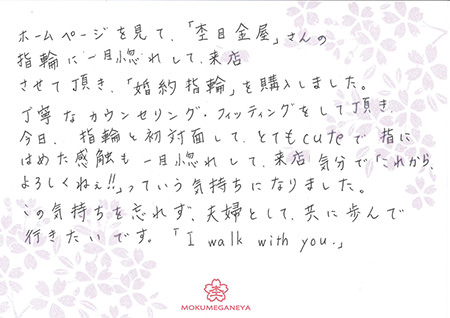 ホームページを見て、「杢目金屋」さんの
指輪に一目惚れして、来店
させて頂き、「婚約指輪」を購入しました。
丁寧なカウンセリング・フィッティングをして頂き、
今日、指輪と初対面して、とてもcuteで指に
はめた感触も一目惚れして、来店気分で「これから、
よろしくねぇ!!」っていう気持ちになりました。
この気持ちを忘れず、夫婦として、共に歩んで
行きたいです。「I walk with you.」
MOKUMEGANEYA